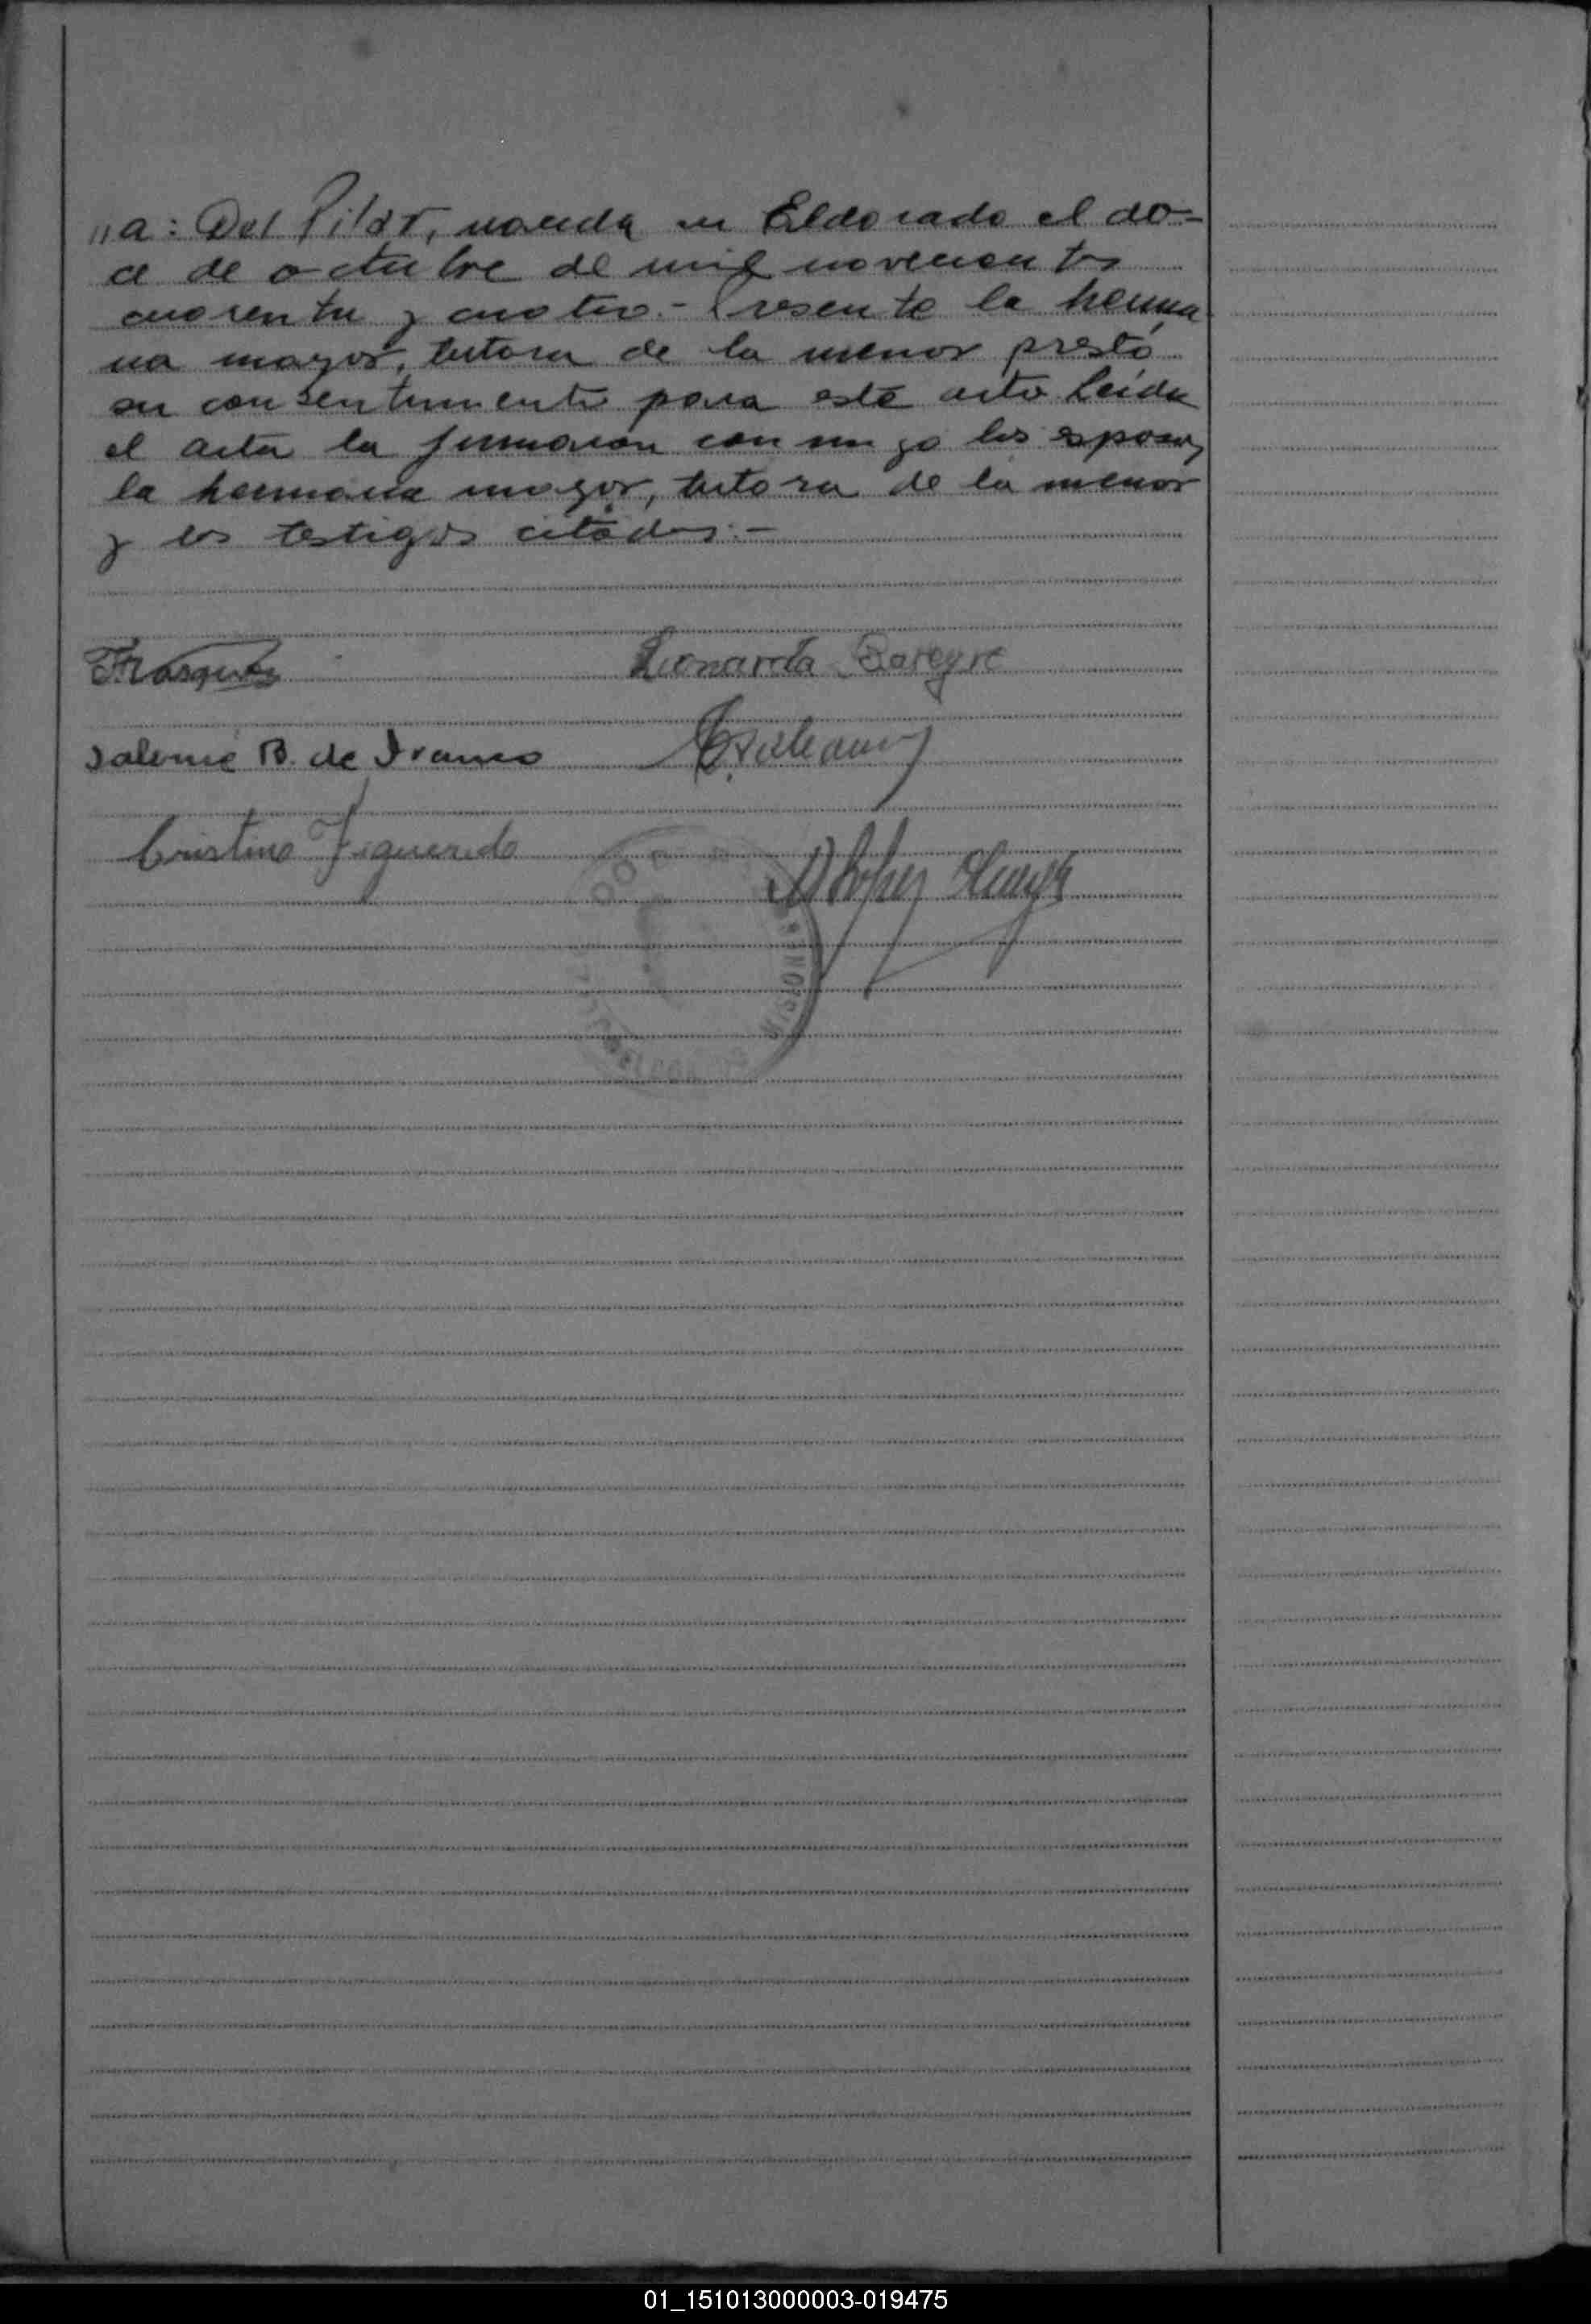 "a: Del Pilar, nacida en Eldorado el do=
ce de octubre de mil novecientos
cuarenta y cuatro.- Presente la herma
na mayor, tutora de la menor prestó
su consentimiento para este acto Leida
el acta la firmaron conmigo los esposos,
la hermana mayor, tutora de la menor
y los testigos citados:-
Leonarda Bareyre
Salomé B. de Franco
Cristino Figueredo
MISIONES
01_151013000003-019475